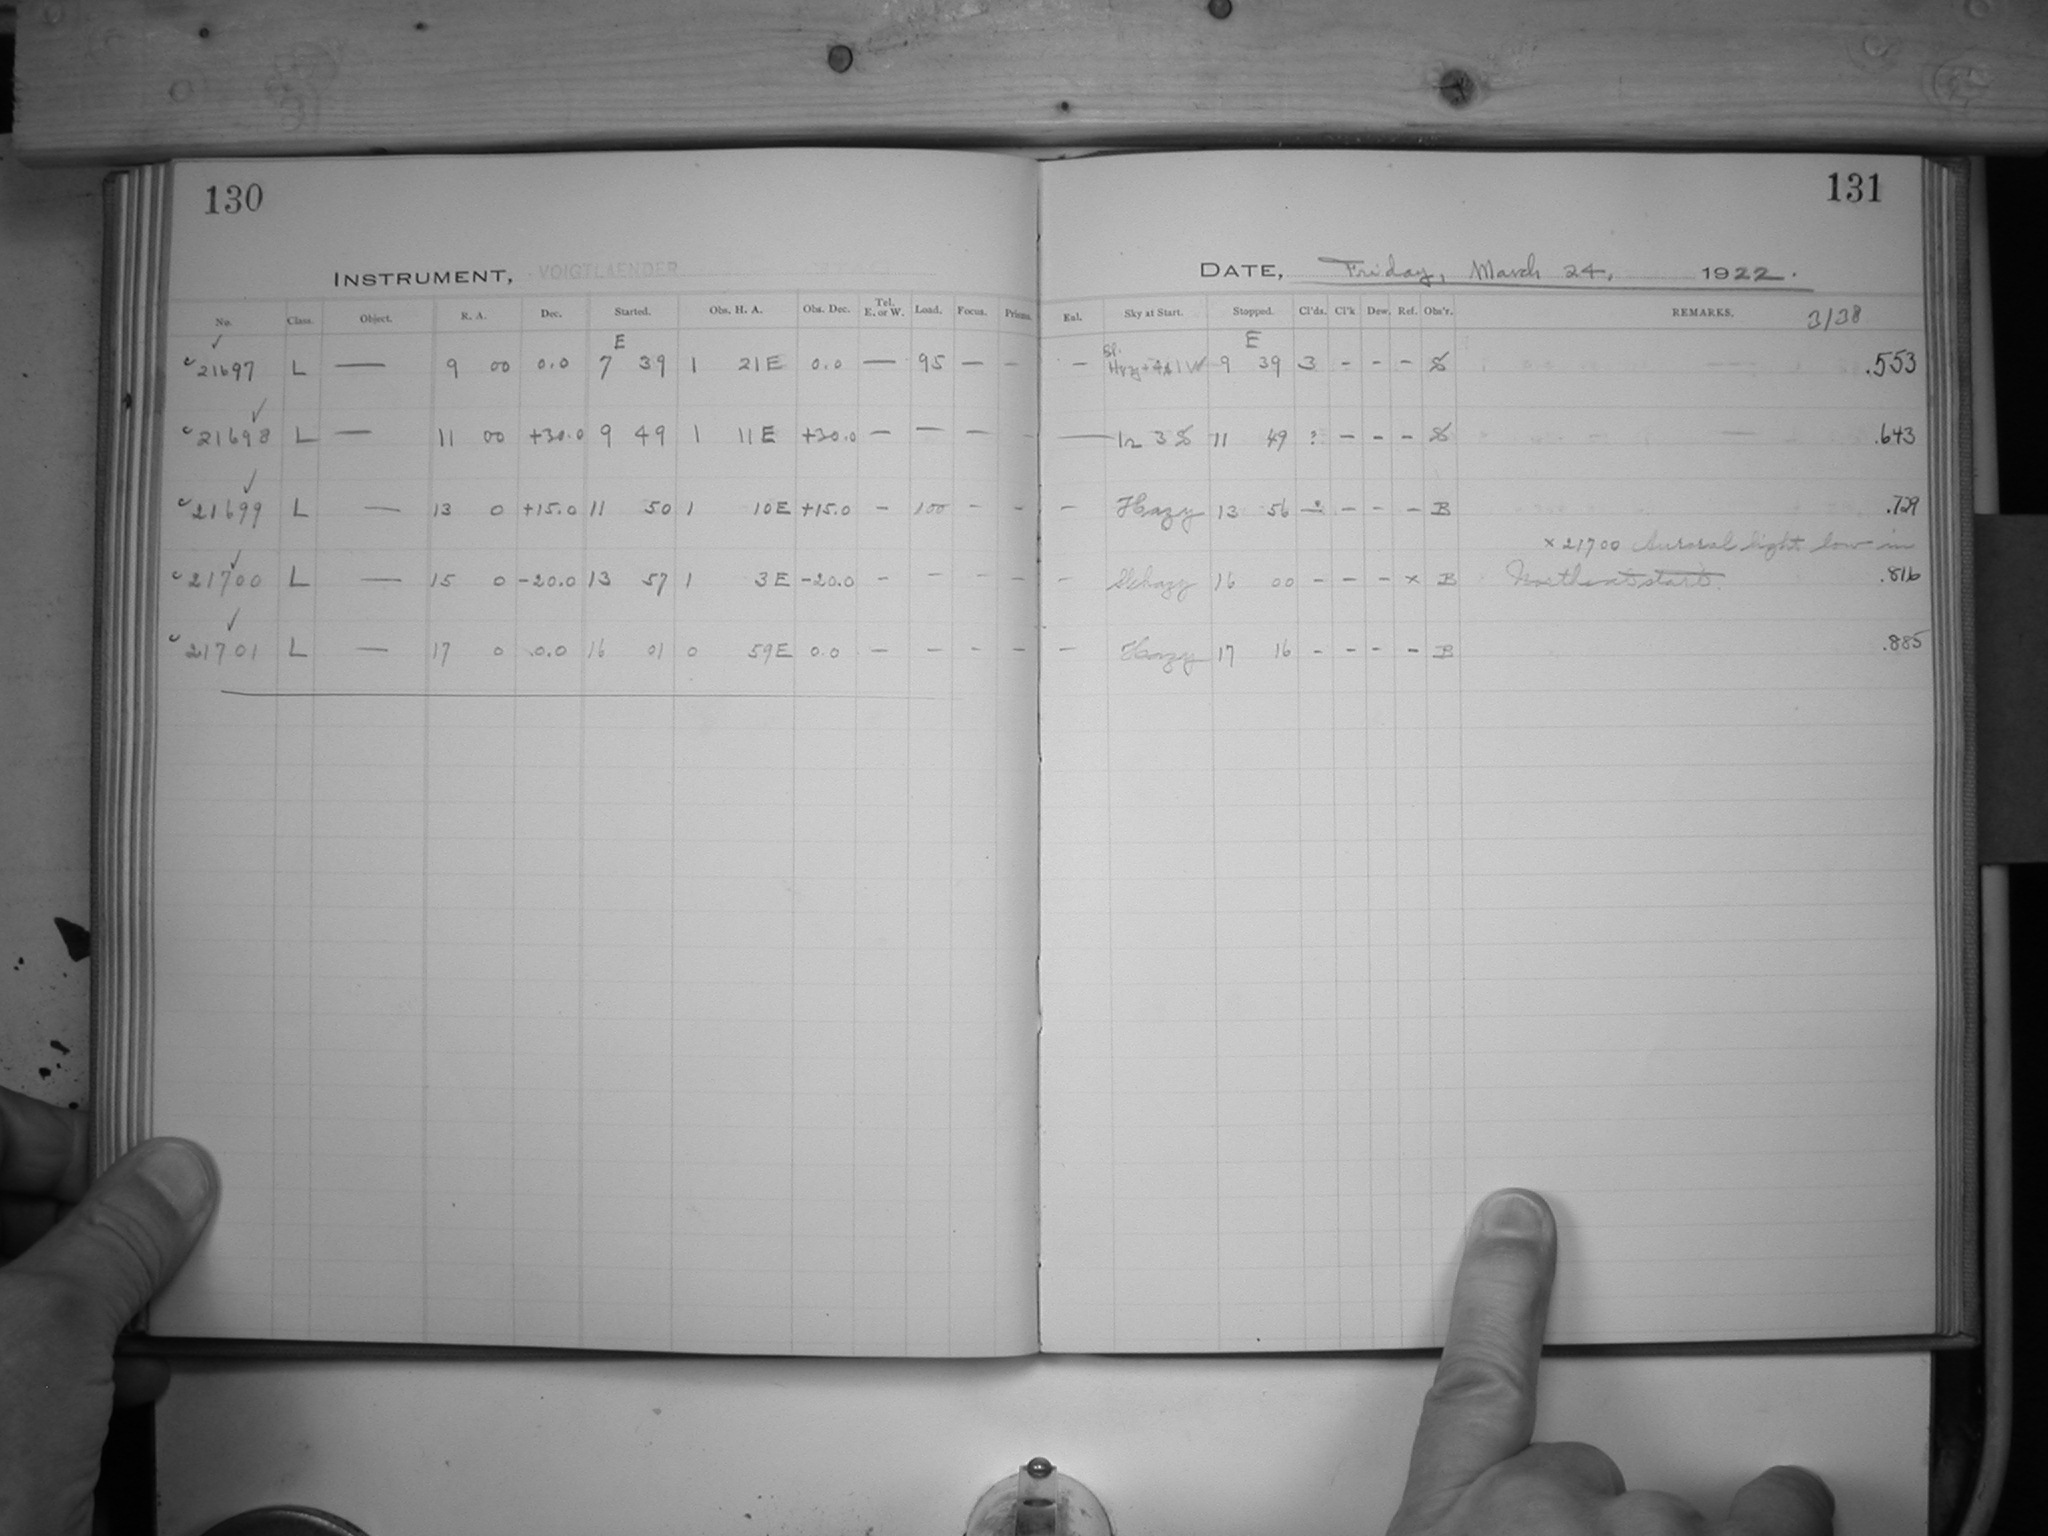 130
131
INSTRUMENT, VOIGTLAENDER
DATE, Friday, March 24, 1922.
No. Class. Object. R. A. Dec. Started. Obs. H. A. Obs. Dec. Tel. E. or W. Load. Focus. Prisms. Eal. Sky at Start. Stopped. Cl'ds. Cl'k Dew. Ref. Obs'r. REMARKS. 3138
E E
✓
c 21697 L — 9 00 0.0 7 39 1 21 E 0.0 — 95 — - - Sl. 9 39 3 - - - S .553
✓
c 21698 L — 11 00 +30.0 9 49 1 11 E +30.0 — — — — — In 3 S 11 49 ? - - - S .643
✓
c 21699 L — 13 0 +15.0 11 50 1 10 E +15.0 - 100 - - - Hazy 13 56 - - - B .729
× 21700 Auroral light low in
✓
c 21700 L — 15 0 -20.0 13 57 1 3 E -20.0 - - - - - Sl hazy 16 00 - - - × B North at start. .816
✓
c 21701 L — 17 0 0.0 16 01 0 59 E 0.0 - - - - - Hazy 17 16 - - - - B .885